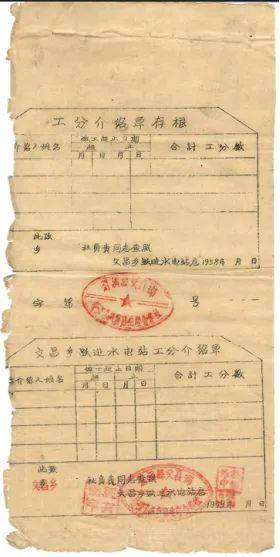 工分介绍单存根
介绍人姓名 做工起止日期 合计工分数
起 止
月 日 月 日
此致
乡 社负责同志查照
文昌乡跃进水电站启 1958年 月 日
字第 号
文昌乡跃进水电站工分介绍单
介绍人姓名 做工起止日期 合计工分数
起 止
月 日 月 日
此致
文昌乡 社负责同志查照
文昌乡跃进水电站启
1958年 月 日